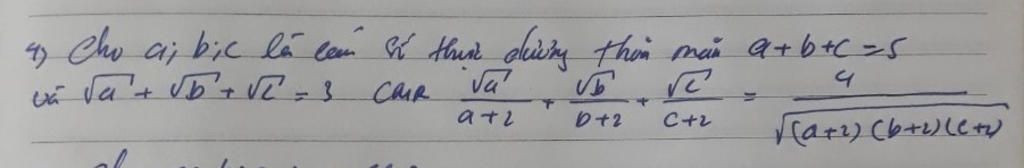 4) Cho a; b; c là các số thực dương thỏa mãn a+b+c=5
và √a + √b + √c = 3 CMR √a/(a+2) + √b/(b+2) + √c/(c+2) = 4/√((a+2)(b+2)(c+2))